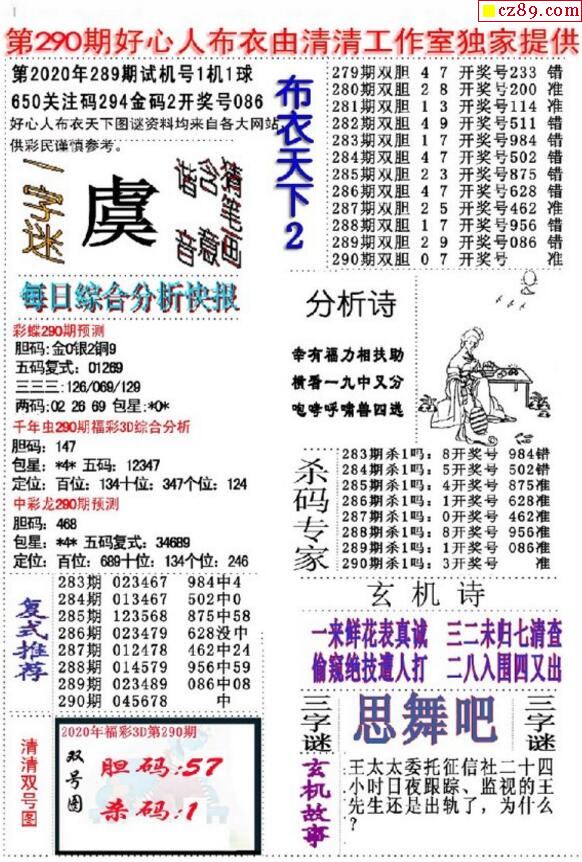 cz89.com
第290期好心人布衣由清清工作室独家提供
第2020年289期试机号1机1球
650关注码294金码2开奖号086
好心人布衣天下图谜资料均来自各大网站,
供彩民谨慎参考。
一字迷
虞
猜笔画
含蕴
谐音
每日综合分析快报
彩蝶290期预测
胆码:金0银2铜9
五码复式：01269
三三三:126/069/129
两码:02 26 69 包星:*0*
千年虫290期福彩3D综合分析
胆码：147
包星：*4* 五码：12347
定位：百位：134十位：347个位：124
中彩龙290期预测
胆码：468
包星：*4* 五码复式：34689
定位：百位：689十位：134个位：246
复式推荐
283期 023467 984中4
284期 013467 502中0
285期 123568 875中58
286期 023479 628没中
287期 012478 462中24
288期 014579 956中59
289期 023489 086中08
290期 045678 中
清清双号图
2020年福彩3D第290期
双号图
胆码:57
杀码:1
布衣天下2
279期双胆 4 7 开奖号233 错
280期双胆 2 8 开奖号200 准
281期双胆 1 3 开奖号114 准
282期双胆 4 9 开奖号511 错
283期双胆 1 7 开奖号984 错
284期双胆 4 7 开奖号502 错
285期双胆 2 3 开奖号875 错
286期双胆 4 7 开奖号628 错
287期双胆 2 5 开奖号462 准
288期双胆 1 7 开奖号956 错
289期双胆 2 9 开奖号086 错
290期双胆 0 7 开奖号 准
分析诗
幸有福力相扶助
横看一九中又分
咆哮呼啸兽四逃
杀码专家
283期杀1吗：8开奖号 984错
284期杀1吗：5开奖号 502错
285期杀1吗：4开奖号 875准
286期杀1吗：1开奖号 628准
287期杀1吗：0开奖号 462准
288期杀1吗：8开奖号 956准
289期杀1吗：1开奖号 086准
290期杀1吗：3开奖号 准
玄机诗
一来鲜花表真诚 三二未归七清查
偷窥绝技遭人打 二八入围四又出
三字谜
思舞吧
三字谜
玄机故事
王太太委托征信社二十四
小时日夜跟踪、监视的王
先生还是出轨了，为什么
?